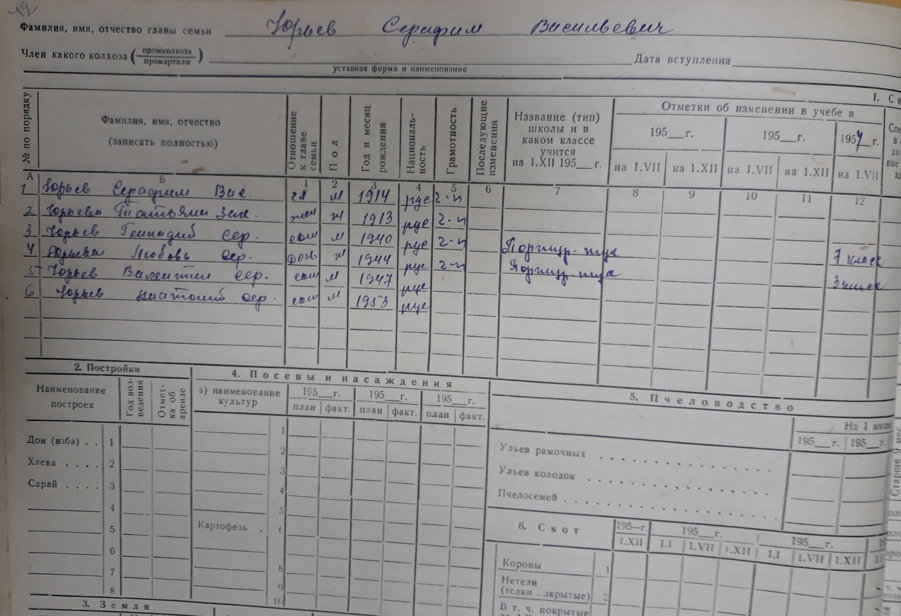 Фамилия, имя, отчество главы семьи Юрьев Серафим Васильевич
Член какого колхоза (промколхоза промартели)
уставная форма и наименование
Дата вступления
1. С
№ по порядку
Фамилия, имя, отчество (записать полностью)
Отношение к главе семьи
Пол
Год и месяц рождения
Националь-ность
Грамотность
Последующие изменения
Название (тип) школы и в каком классе учится на 1.XII 195 г.
Отметки об изменении в учебе в
195 г. 195 г. 195 г.
на 1.VII на 1.XII на 1.VII на 1.XII на 1.VII
А Б 1 2 3 4 5 6 7 8 9 10 11 12
1 Юрьев Серафим Вас м 1914 рус
2 Юрьева Татьяна ж 1913 рус
3 Юрьев Геннадий Сер. сын м 1940 рус
4 Юрьева Любовь Сер. дочь ж 1944 рус 7 класс
5 Юрьев Валентин Сер. сын м 1947 рус 3 класс
6 Юрьев Анатолий Сер. сын м 1953 рус
2. Постройки
Наименование построек
Год воз-ведения
Отмет-ка об аренде
Дом (изба) . . 1
Хлева . . . . 2
Сарай . . . . 3
4
5
6
7
8
3. Земля
4. Посевы и насаждения
а) наименование культур
195 г. 195 г. 195 г.
план факт. план факт. план факт.
1
2
3
4
5
Картофель .
8
9
10
5. Пчеловодство
На 1 июля
195 г. 195 г.
Ульев рамочных
Ульев колодок
Пчелосемей
6. Скот
195 г. 195 г. 195 г.
1.XII 1.I 1.VII 1.XII 1.I 1.VII 1.XII
Коровы 1
Нетели (телки крытые) 2
В т. ч. покрытые